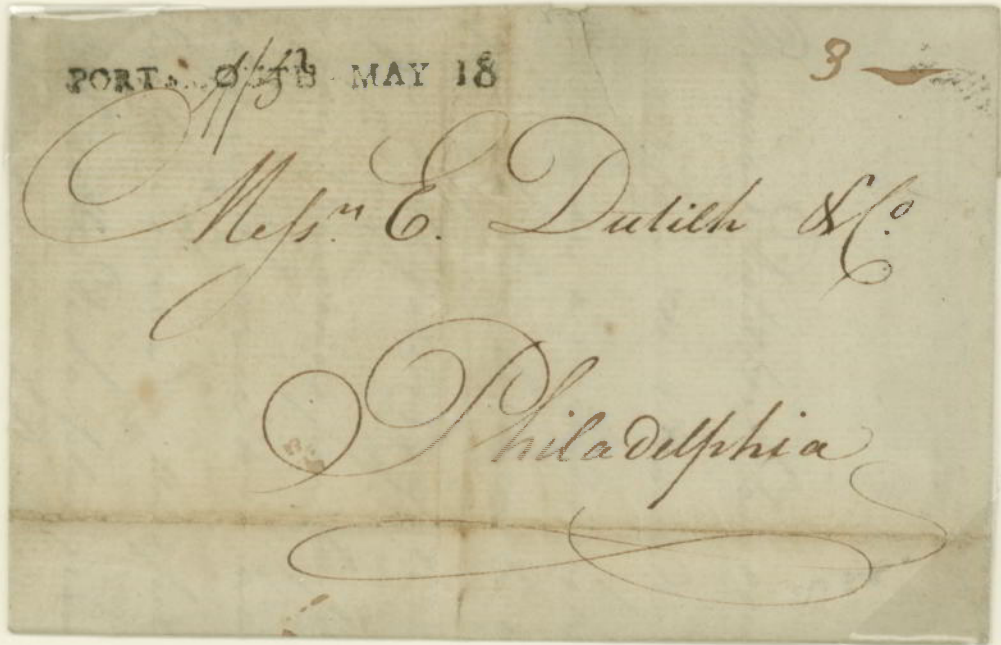 PORTSMOUTH MAY 18
3
Messrs. E. Dutilh & Co.
Philadelphia